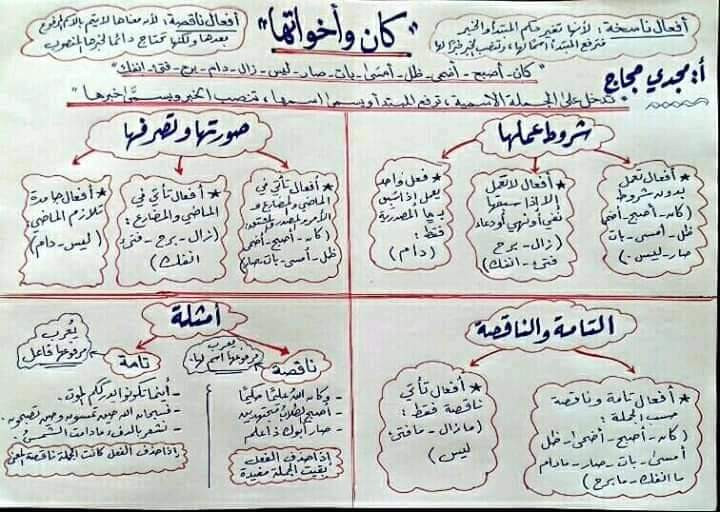 "كان وأخواتها"
أفعال ناسخة: لأنها تغير حكم المبتدأ والخبر
فترفع المبتدأ اسمًا لها، وتنصب الخبر خبرًا لها
أفعال ناقصة: لأن معناها لا يتم بالاسم المرفوع
بعدها ولكنها تحتاج دائمًا لخبرها المنصوب
أ: مجدي حجاج
"كان - أصبح - أضحى - ظل - أمسى - بات - صار - ليس - زال - دام - برح - فتئ - انفك"
تدخل على الجملة الاسمية، ترفع المبتدأ ويسمى اسمها، وتنصب الخبر ويسمى خبرها
شروط عملها
★ أفعال تعمل
بدون شروط
(كان - أصبح - أضحى
ظل - أمسى - بات
صار - ليس.)
★ أفعال لا تعمل
إلا إذا سبقها
نفي أو نهي أو دعاء:
(زال - برح
فتئ - انفك)
★ فعل واحد
يعمل إذا سُبق
بـ ما المصدرية
فقط:
(دام)
صورتها وتصرفها
★ أفعال تأتي في
الماضي والمضارع و
الأمر والمصدر والمشتق:
(كان - أصبح - أضحى
ظل - أمسى - بات - صار)
★ أفعال تأتي في
الماضي والمضارع:
(زال - برح - فتئ
انفك)
★ أفعال جامدة
تلازم الماضي:
(ليس - دام)
التامة والناقصة
★ أفعال تامة وناقصة
حسب الجملة:
(كان - أصبح - أضحى - ظل
أمسى - بات - صار - مادام
ما انفك - ما برح)
★ أفعال تأتي
ناقصة فقط:
(مازال - مافتئ
ليس)
أمثلة
ناقصة
يعرب
مرفوعها اسم لها.
- وكان الله عليمًا حكيمًا
- أصبح الطلاب مجتهدين
- صار أبوك ذا علم
إذا حذف الفعل
بقيت الجملة مفيدة
تامة
يُعرب
مرفوعها فاعل
- أينما تكونوا يدرككم الموت.
- فسبحان الله حين تمسون وحين تصبحون.
- نشعر بالدفء مادامت الشمس.
إذا حذف الفعل كانت الجملة ناقصة المعنى